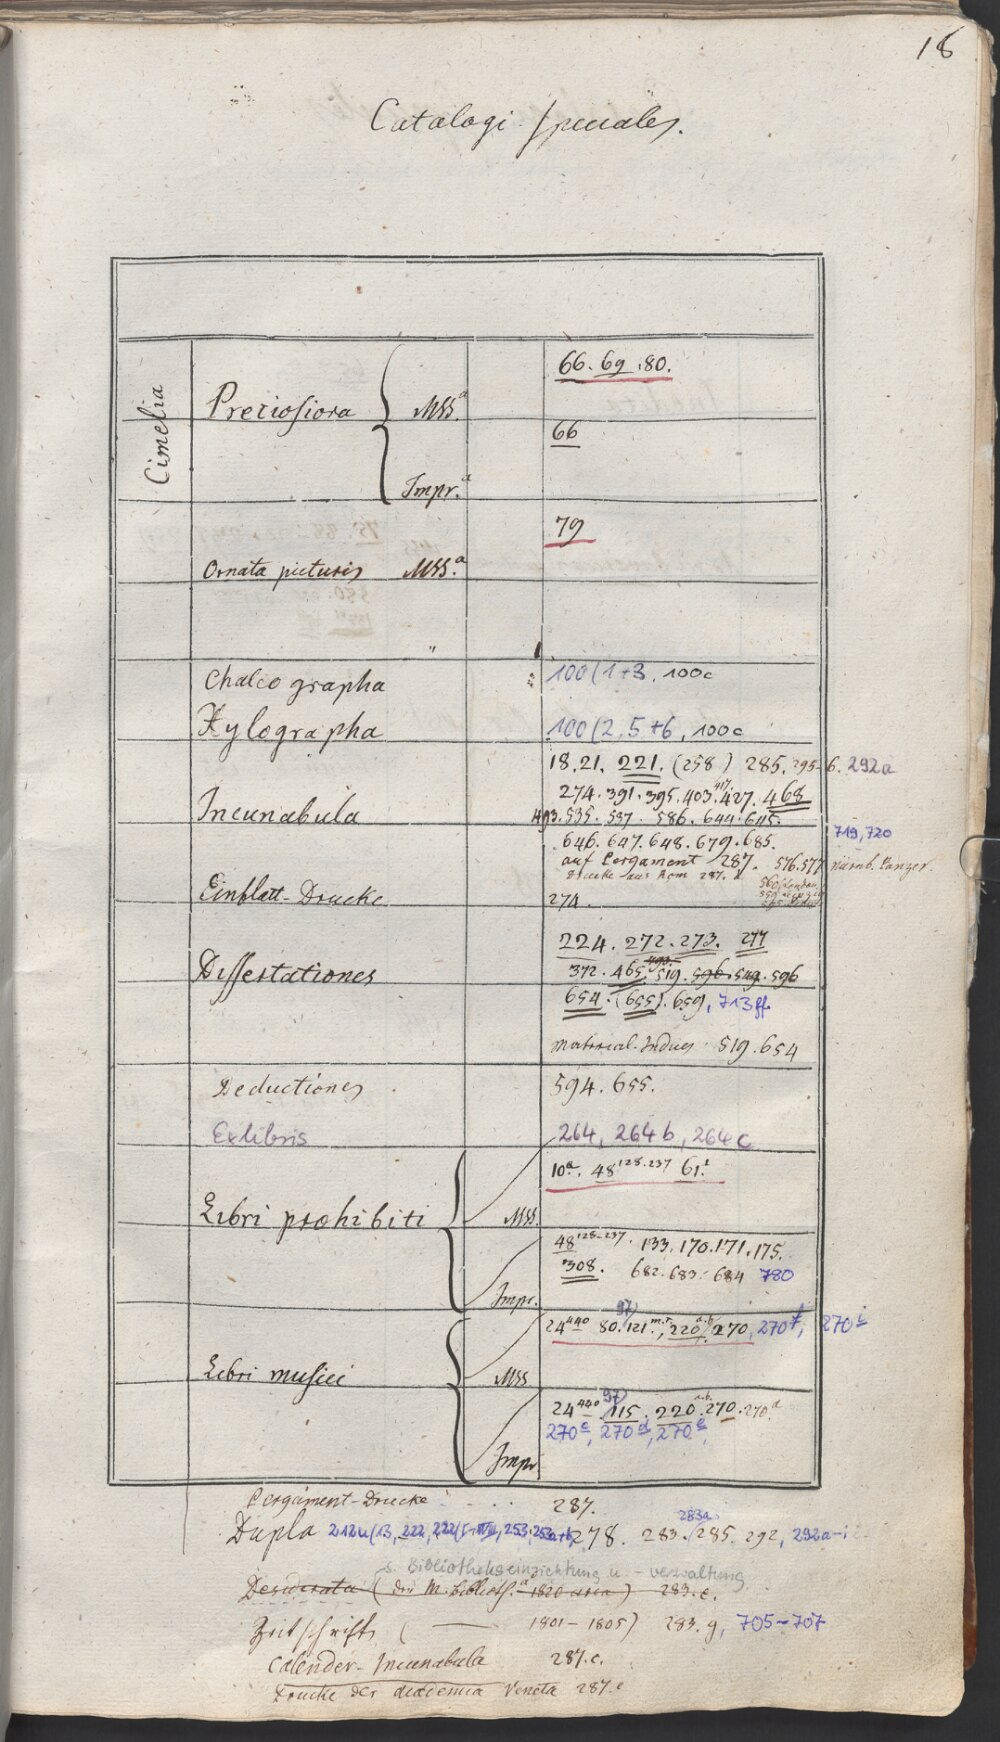 18
Catalogi speciales.
Cimelia
66. 69. 80.
Pretiosiora MSS.a
66
Impr.a
79
Ornata picturis MSS.a
Chalcographa 100(1+3, 100c
Xylographa 100(2, 5+6, 100c
18. 21. 221. (258) 285. 295-6. 292a
274. 391. 395. 403. 417. 427. 468
Incunabula 493. 535. 537. 586. 644. 645.
719, 720
646. 647. 648. 679. 685.
auf Pergament 287. 576. 577 Nürnb. Panzer.
Drucke aus Rom 287. d
Einblatt-Drucke 274.
224. 272. 273. 277
Dissertationes 372. 465. 493. 519. 596. 549. 596
654. (655). 659, 713ff
519. 654
Deductiones 594. 655.
Exlibris 264, 264b, 264c
10a. 48 128-237 61.1
Libri prohibiti MSS.
48 128-237. 133. 170. 171. 175.
308. 682. 683. 684 780
Impr.
97)
24 440 80. 121. m.r., 220 a.b. 270, 270f, 270i
Libri musici MSS
97)
24 440. 115. 220 a.b. 270. 270.d
270c, 270d, 270e,
Impr
Pergament-Drucke 287.
283a
Dupla 278. 283. 285. 292, 292a-i
s. Bibliothekseinrichtung u. -verwaltung
Desiderata (der M. Biblioth.a 1820 circa) 283.e.
Zeitschrift ( — 1801-1805) 283. g, 705-707
Calender-Incunabula 287.c.
Drucke der Academia Veneta 287.e